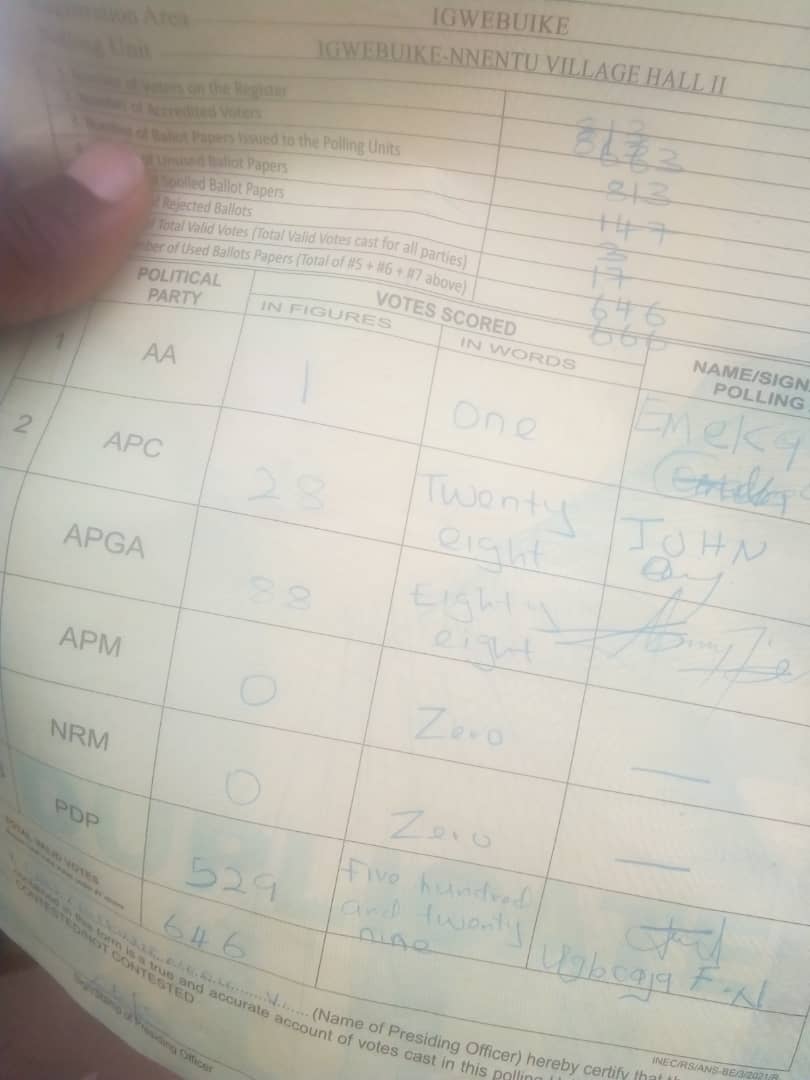 Registration Area IGWEBUIKE
Polling Unit IGWEBUIKE-NNENTU VILLAGE HALL II
Number of Voters on the Register
Number of Accredited Voters
Number of Ballot Papers Issued to the Polling Units 813
Unused Ballot Papers 147
Spoiled Ballot Papers 3
Rejected Ballots 17
Total Valid Votes (Total Valid Votes cast for all parties) 646
Number of Used Ballots Papers (Total of #5 + #6 + #7 above) 666
POLITICAL PARTY VOTES SCORED NAME/SIGN
IN FIGURES IN WORDS POLLING
1 AA 1 One Emeka
2 APC 28 Twenty eight JOHN
APGA 88 Eighty eight
APM 0 Zero —
NRM 0 Zero —
PDP 529 Five hundred and twenty nine
TOTAL VALID VOTES 646
(Name of Presiding Officer) hereby certify that
contained in this form is a true and accurate account of votes cast in this polling
CONTESTED/NOT CONTESTED
Signature of Presiding Officer
INEC/RS/ANS-BE/3/2021/R